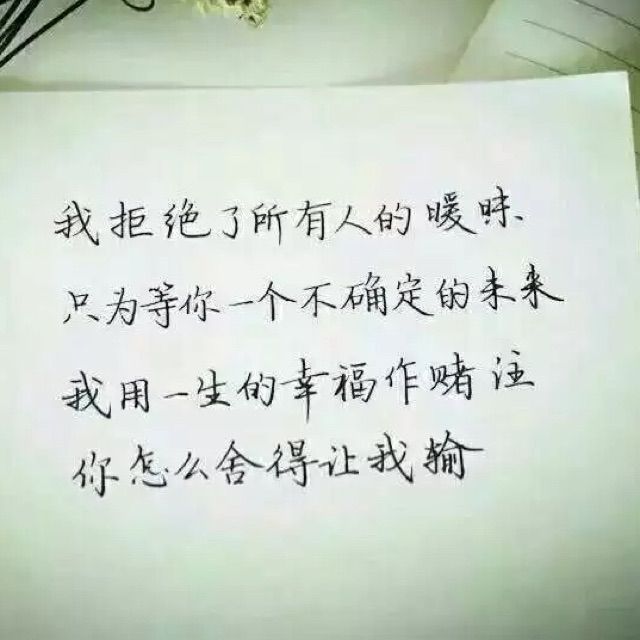 我拒绝了所有人的暧昧、
只为等你一个不确定的未来
我用一生的幸福作赌注
你怎么舍得让我输